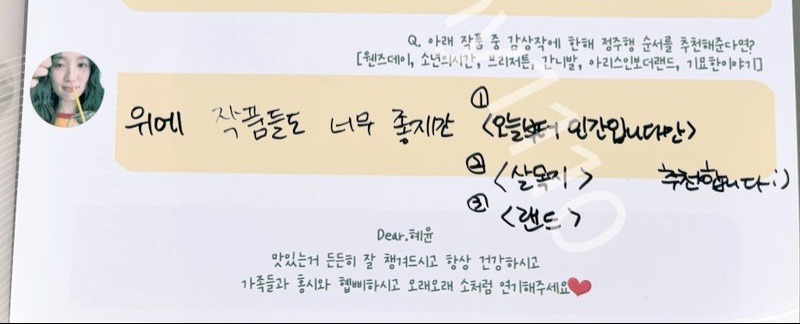 Q. 아래 작품 중 감상작에 한해 정주행 순서를 추천해준다면?
[웬즈데이, 소년의시간, 브리저튼, 간니발, 아리스인보더랜드, 기묘한이야기]
위에 작품들도 너무 좋지만 ① <오늘부터 인간입니다만>
② <살목지> 추천합니다:)
③ <랜드>
Dear.혜윤
맛있는거 든든히 잘 챙겨드시고 항상 건강하시고
가족들과 홍시와 햅삐하시고 오래오래 소처럼 연기해주세요❤